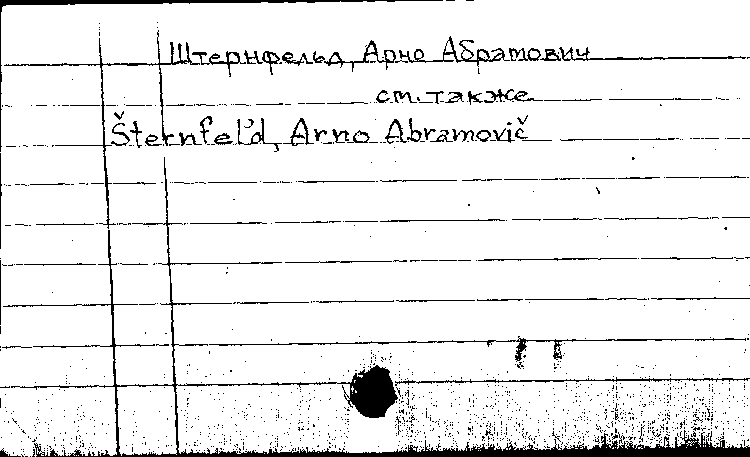 Штернфельд, Арно Абрамович
см. также
Šternfel'd, Arno Abramovič